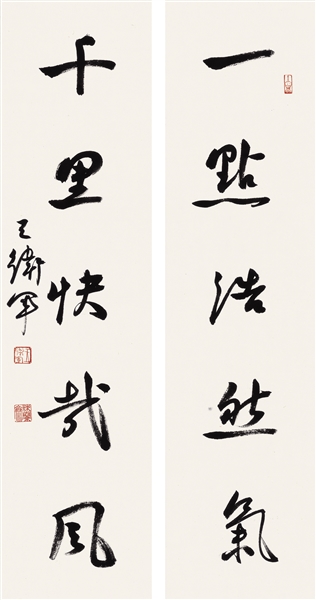 一點浩然氣
千里快哉風
王衛軍